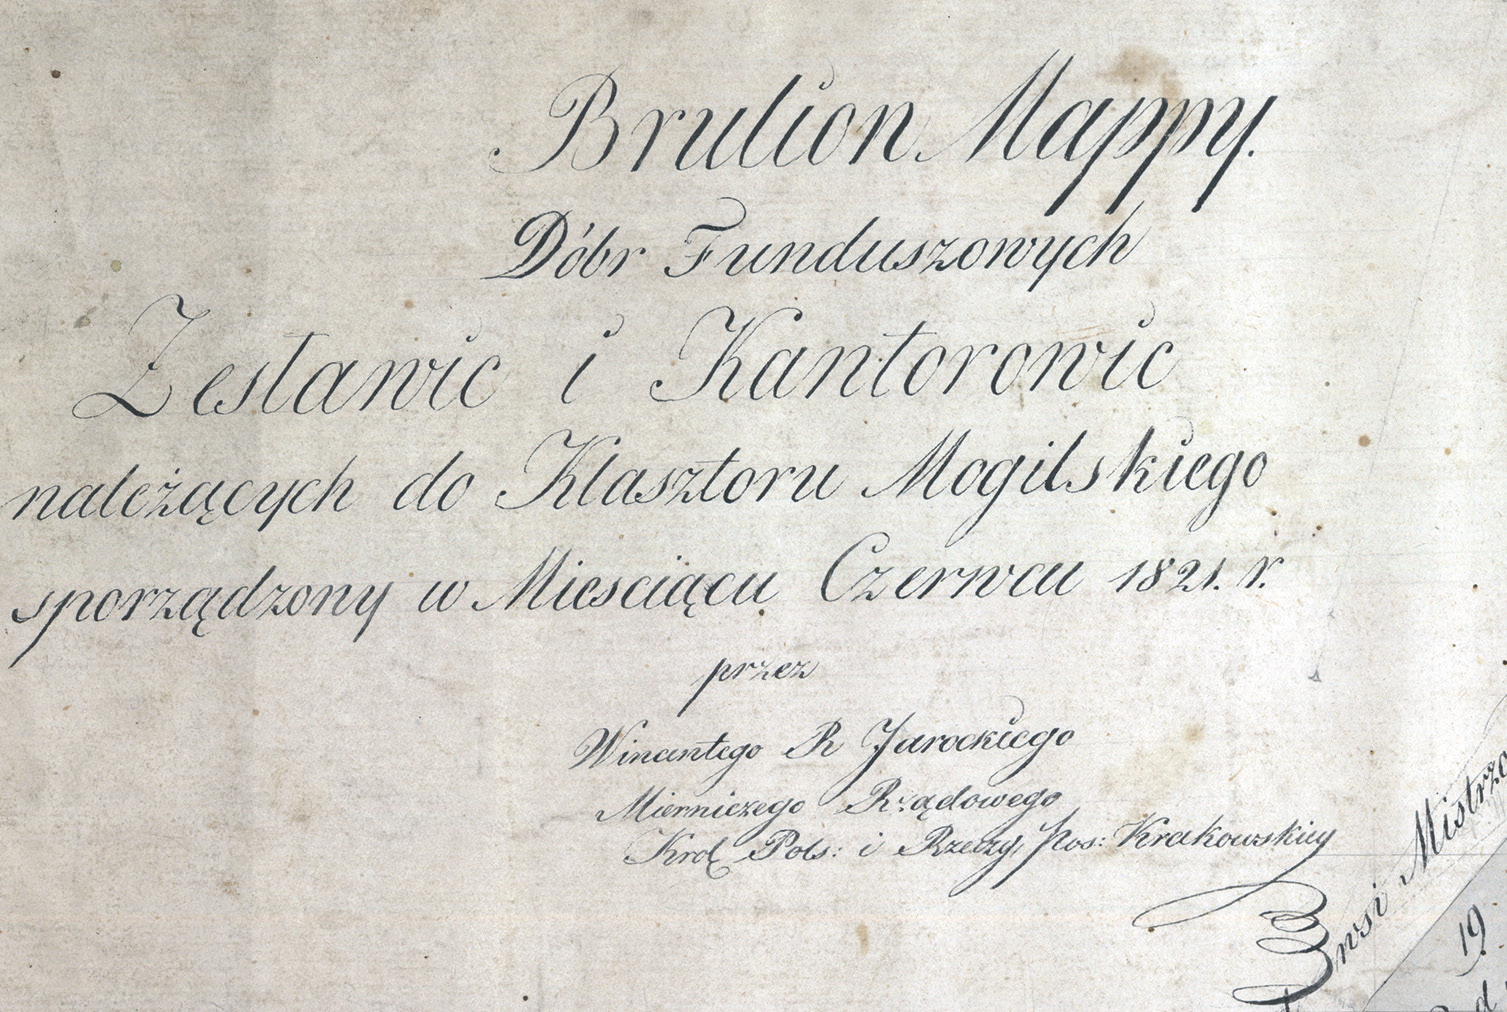 Brulion Mappy.
Dóbr Funduszowych
Zestawic i Kantorowic
należących do Klasztoru Mogilskiego
sporządzony w Miesciącu Czerwcu 1821. r.
przez
Wincentego R Jarockiego
Mierniczego Rządowego
Krol Pols: i Rzeczy, Pos: Krakowskiey
wsi Mistrzo
19.